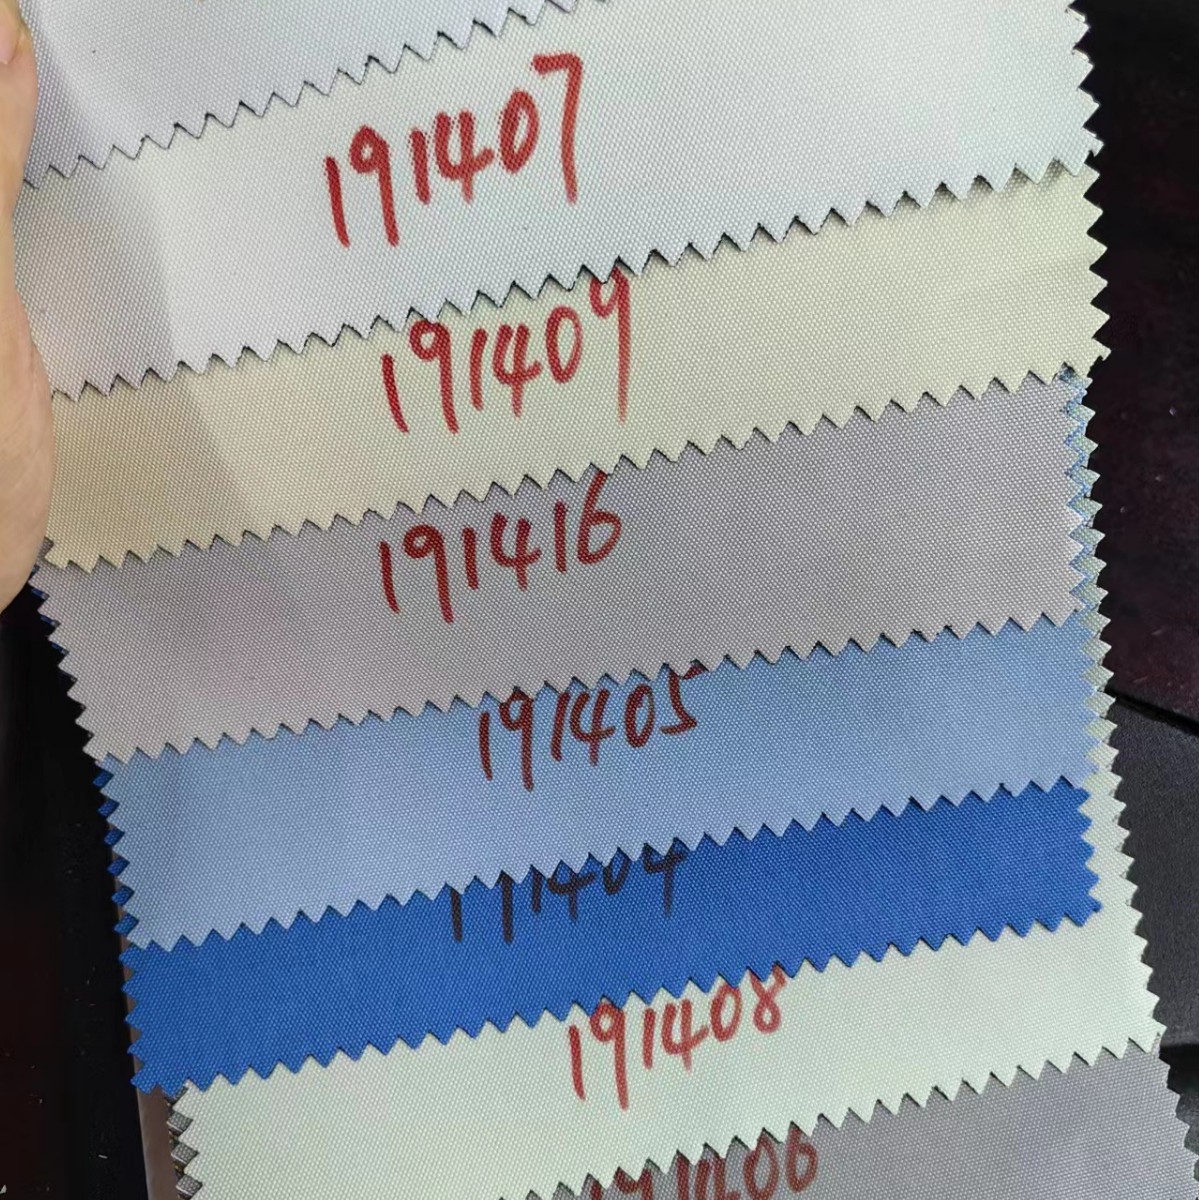 191407
191409
191416
191405
191404
191408
191406